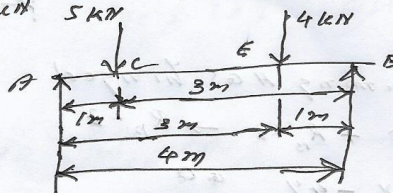 5 kN 4 kN
A C E B
3 m
1 m 3 m 1 m
4 m